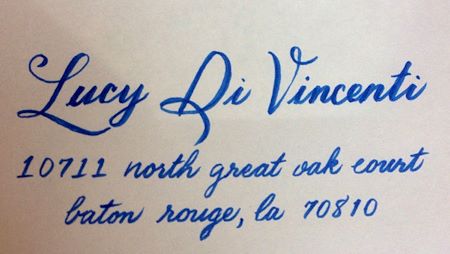 Lucy Di Vincenti
10711 north great oak court
baton rouge, la 70810